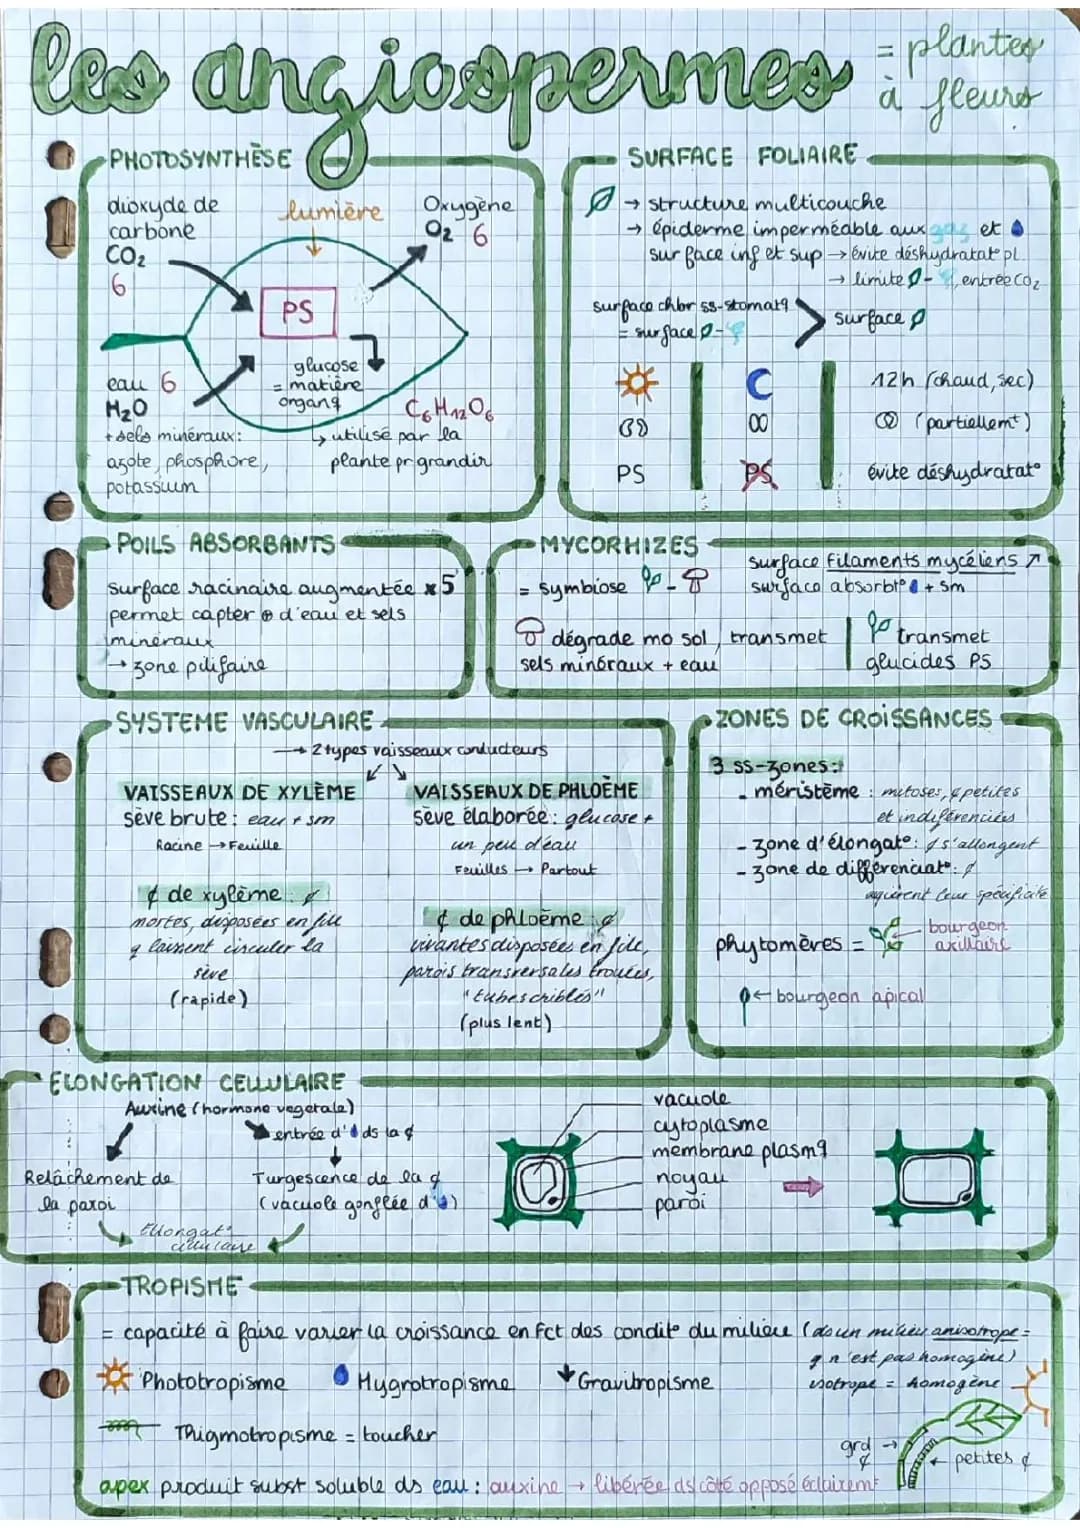 les angiospermes = plantes
à fleurs
PHOTOSYNTHÈSE
dioxyde de
carbone
CO2
6
lumière
Oxygène
O2 6
PS
eau 6
H2O
+ sels minéraux:
azote, phosphore,
potassium
glucose
= matière
orgaq
C6H12O6
↳ utilisé par la
plante pr grandir
SURFACE FOLIAIRE
→ structure multicouche
→ épiderme imperméable aux gaz et
surface inf et sup → évite déshydratat° pl.
→ limite - , entrée CO2
surface chbr ss-stomatq
= surface -
> surface
12h (chaud, sec)
(partiellemt)
PS
PS
évite déshydratat°
POILS ABSORBANTS
surface racinaire augmentée x5
permet capter ⊕ d'eau et sels
minéraux
→ zone pilifaire
MYCORHIZES
= symbiose -
surface filaments mycéliens ↗
surface absorbt° + sm
dégrade mo sol, transmet
sels minéraux + eau
transmet
glucides PS
SYSTEME VASCULAIRE
→ 2 types vaisseaux conducteurs
VAISSEAUX DE XYLÈME
sève brute : eau + sm
Racine → Feuille
¢ de xylème : ¢
mortes, disposées en file
q laissent circuler la
sève
(rapide)
VAISSEAUX DE PHLOÈME
sève élaborée : glucose +
un peu d'eau
Feuilles → Partout
¢ de phloème : ¢
vivantes disposées en file,
parois transversales trouées,
"tubes criblés"
(plus lent)
ZONES DE CROISSANCES
3 ss-zones:
- méristème : mitoses, ¢ petites
et indifférenciées
- zone d'élongat° : ¢ s'allongent
- zone de différenciat° : ¢
aquièrent leur spécificité
phytomères =
← bourgeon
axillaire
← bourgeon apical
ELONGATION CELLULAIRE
Auxine (hormone vegetale)
entrée d' ds la ¢
Relâchement de
la paroi
Turgescence de la ¢
(vacuole gonflée d' )
Ellongat°
cellulaire
vacuole
cytoplasme
membrane plasmq
noyau
paroi
TROPISME
= capacité à faire varier la croissance en fct des condit° du milieu (ds un milieu anisotrope =
q n'est pas homogène)
isotrope = homogène
Phototropisme
Hygrotropisme
Gravitropisme
Thigmotropisme = toucher
grd →
¢
← petites ¢
apex produit subst soluble ds eau : auxine → libérée ds côté opposé éclairemt